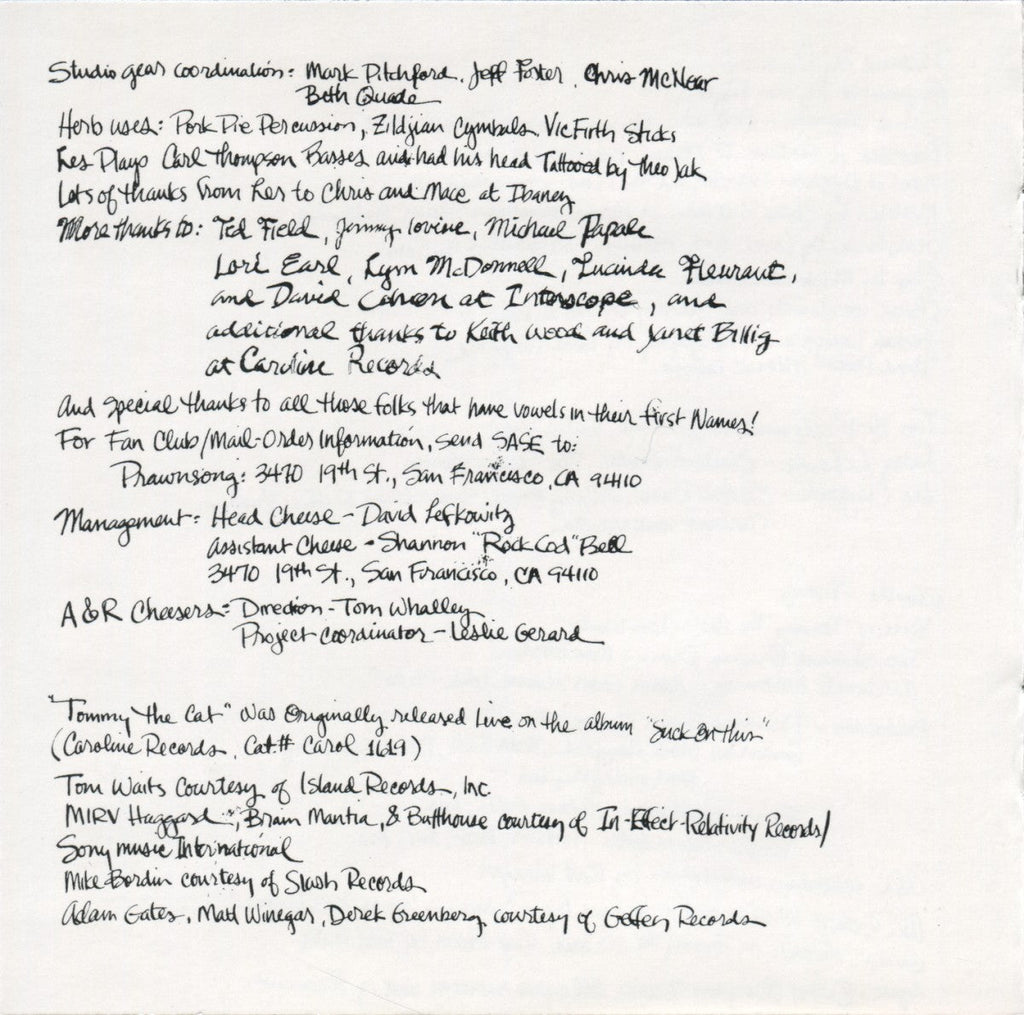 Studio gear coordination: Mark Pitchford, Jeff Foster, Chris McNear
Beth Quade
Herb uses: Pork Pie Percussion, Zildjian Cymbals, Vic Firth Sticks
Les Plays Carl Thompson Basses and had his head Tattooed by Theo Jak
Lots of thanks from Les to Chris and Mace at Ibanez
More thanks to: Ted Field, Jimmy Iovine, Michael Papale
Lori Earl, Lynn McDonnell, Lucinda Fleurant,
and David Cohen at Interscope, and
additional thanks to Keith Wood and Janet Billig
at Caroline Records
And special thanks to all those folks that have vowels in their first Names!
For Fan Club/Mail-Order Information, send SASE to:
Prawnsong: 3470 19th St., San Francisco, CA 94110
Management: Head Cheese - David Lefkowitz
Assistant Cheese - Shannon "Rock Cod" Bell
3470 19th St., San Francisco, CA 94110
A&R Cheesers: Direction - Tom Whalley
Project Coordinator - Leslie Gerard
"Tommy the Cat" was Originally released Live on the album "Suck On This"
(Caroline Records, Cat.# Carol 1619)
Tom Waits Courtesy of Island Records, Inc.
MIRV Haggard, Brain Mantia, & Butthouse courtesy of In-Effect-Relativity Records/
Sony music International
Mike Bordin courtesy of Slash Records
Adam Gates, Matt Winegar, Derek Greenberg, courtesy of Geffen Records